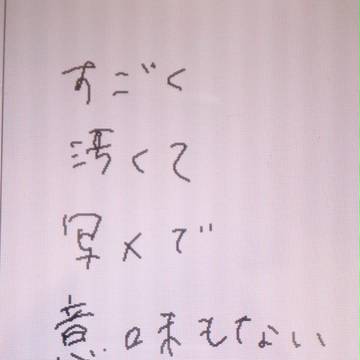 すごく
汚くて
写メで
意味もない